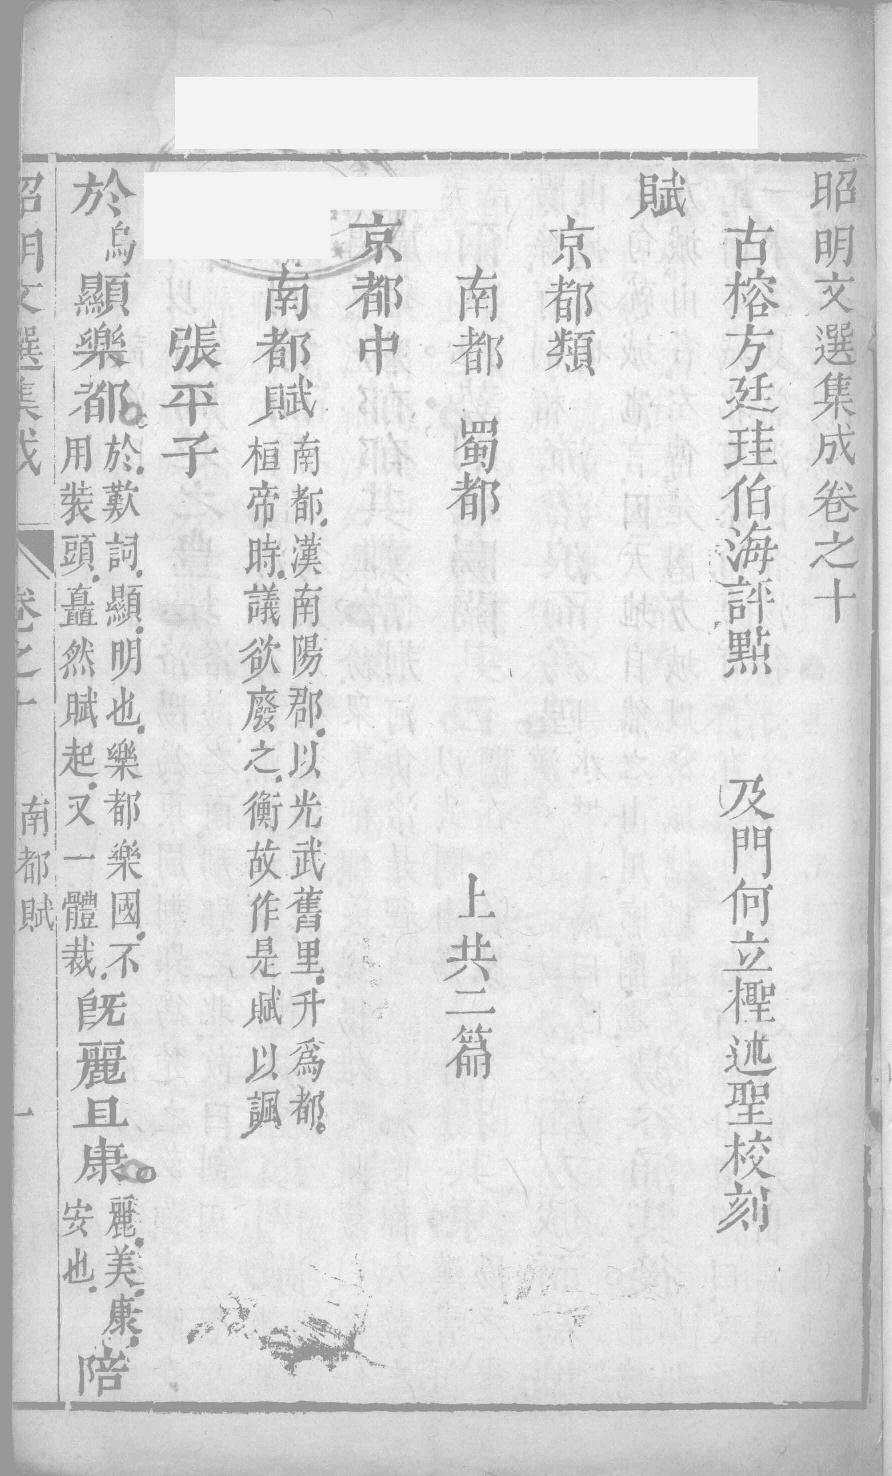 昭明文選集成卷之十
古榕方廷珪伯海評點　及門何立樫述聖校刻
賦
京都類
南都　蜀都　上共二篇
京都中
南都賦南都漢南陽郡以光武舊里升爲都
桓帝時議欲廢之衡故作是賦以諷
張平子
於烏顯樂都於歎詞顯明也樂都樂國不
用裝頭矗然賦起又一體裁旣麗且康麗美康
安也陪
昭明文選集成　卷之十　南都賦　一